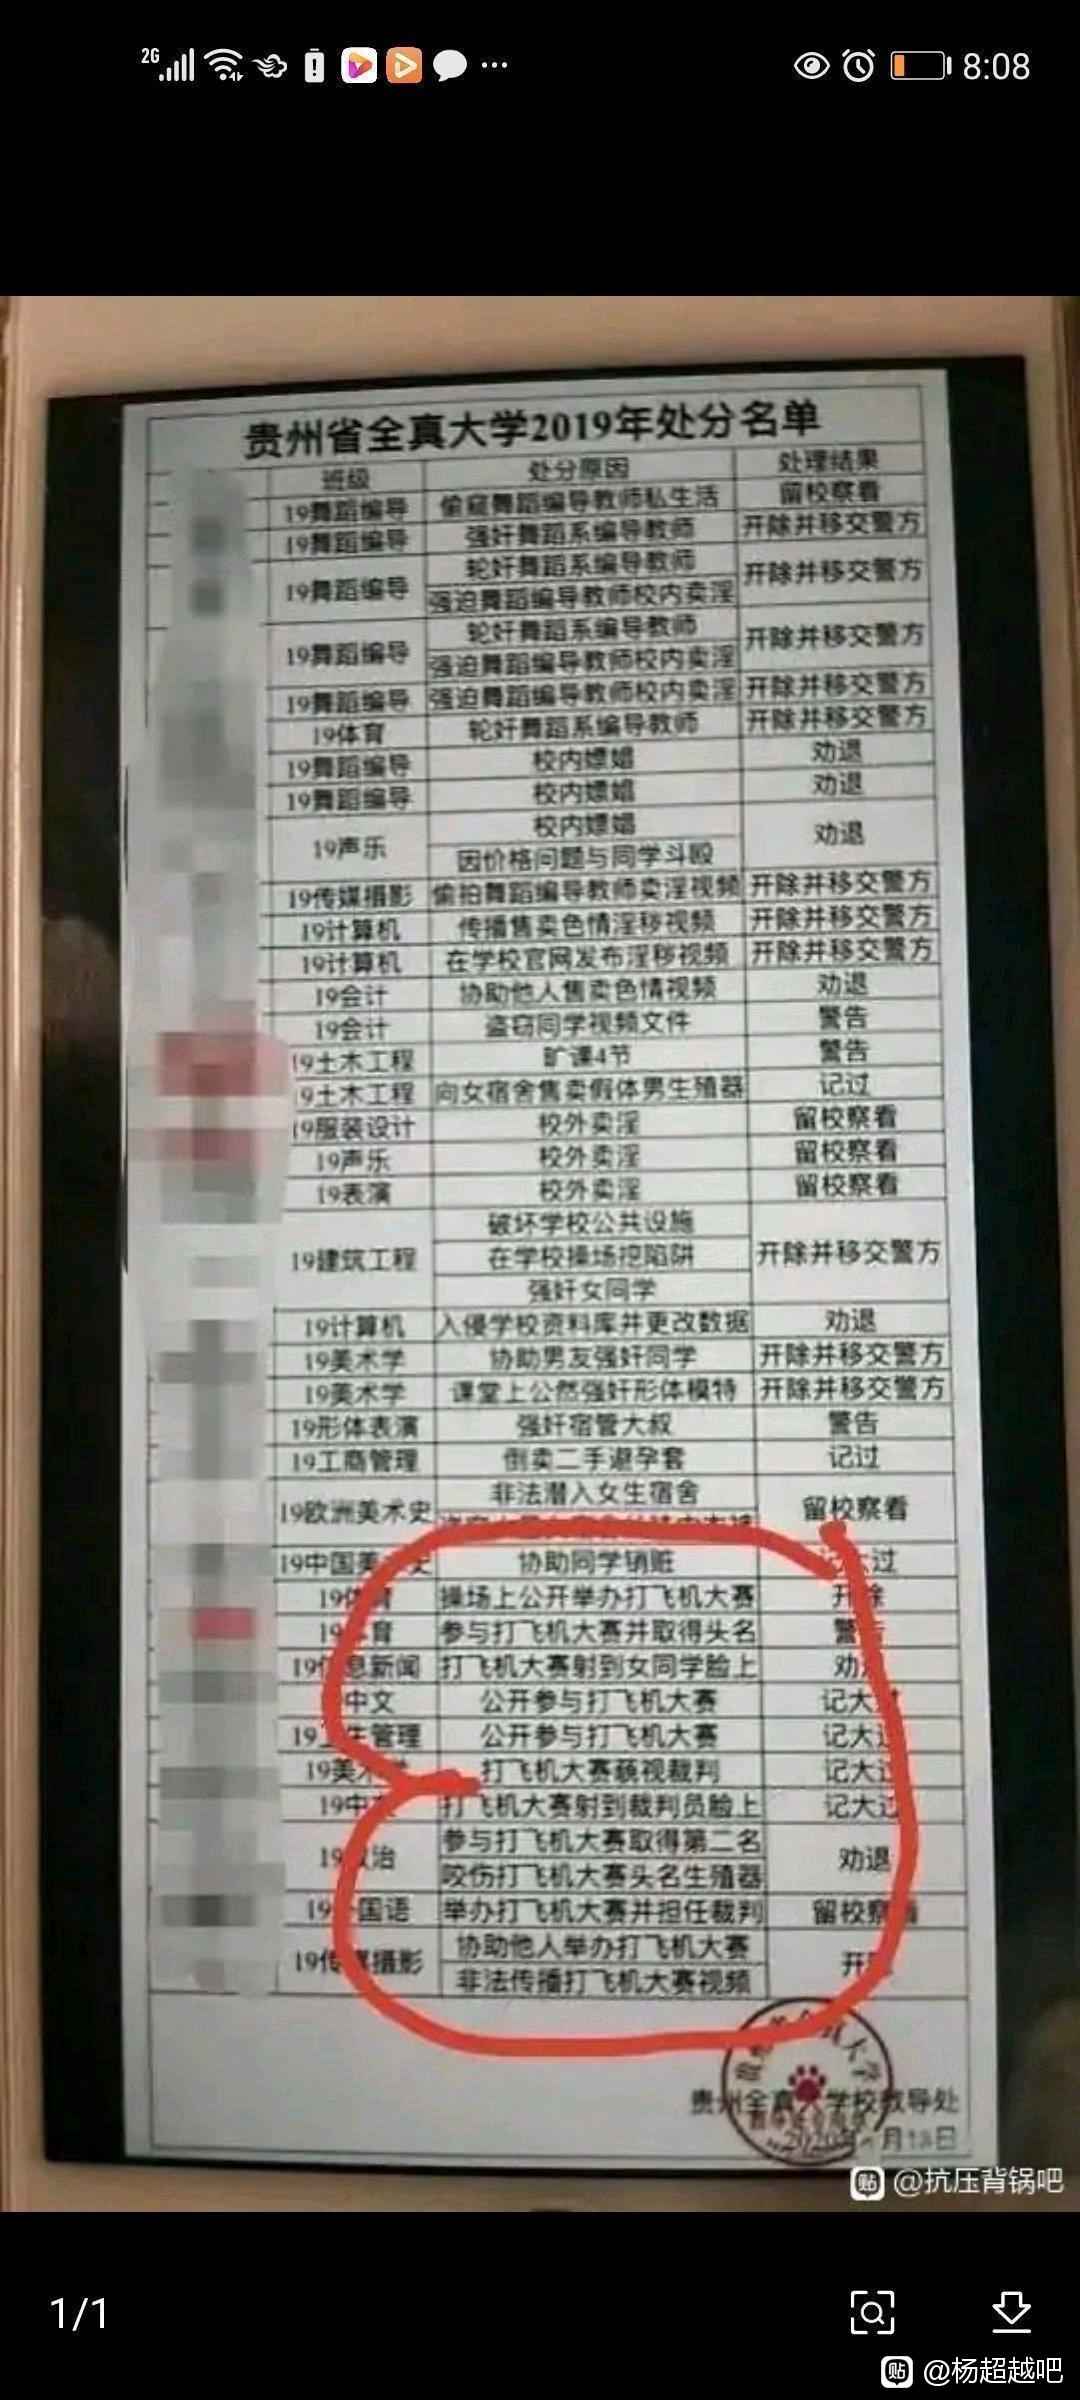 2G 8:08
贵州省全真大学2019年处分名单
班级 处分原因 处理结果
19舞蹈编导 偷窥舞蹈编导教师私生活 留校察看
19舞蹈编导 强奸舞蹈系编导教师 开除并移交警方
19舞蹈编导 轮奸舞蹈系编导教师 开除并移交警方
强迫舞蹈编导教师校内卖淫
19舞蹈编导 轮奸舞蹈系编导教师 开除并移交警方
强迫舞蹈编导教师校内卖淫
19舞蹈编导 强迫舞蹈编导教师校内卖淫 开除并移交警方
19体育 轮奸舞蹈系编导教师 开除并移交警方
19舞蹈编导 校内嫖娼 劝退
19舞蹈编导 校内嫖娼 劝退
19声乐 校内嫖娼 劝退
因价格问题与同学斗殴
19传媒摄影 偷拍舞蹈编导教师卖淫视频 开除并移交警方
19计算机 传播售卖色情淫秽视频 开除并移交警方
19计算机 在学校官网发布淫秽视频 开除并移交警方
19会计 协助他人售卖色情视频 劝退
19会计 盗窃同学视频文件 警告
19土木工程 旷课4节 警告
19土木工程 向女宿舍售卖假体男生殖器 记过
19服装设计 校外卖淫 留校察看
19声乐 校外卖淫 留校察看
19表演 校外卖淫 留校察看
19建筑工程 破坏学校公共设施 开除并移交警方
在学校操场挖陷阱
强奸女同学
19计算机 入侵学校资料库并更改数据 劝退
19美术学 协助男友强奸同学 开除并移交警方
19美术学 课堂上公然强奸形体模特 开除并移交警方
19形体表演 强奸宿管大叔 警告
19工商管理 倒卖二手避孕套 记过
19欧洲美术史 非法潜入女生宿舍 留校察看
19中国美术史 协助同学销赃 记大过
19体育 操场上公开举办打飞机大赛 开除
19体育 参与打飞机大赛并取得头名 警告
19信息新闻 打飞机大赛射到女同学脸上 劝
中文 公开参与打飞机大赛 记大过
19卫生管理 公开参与打飞机大赛 记大过
19美术学 打飞机大赛藐视裁判 记大过
19中文 打飞机大赛射到裁判员脸上 记大过
19政治 参与打飞机大赛取得第二名 劝退
咬伤打飞机大赛头名生殖器
19外国语 举办打飞机大赛并担任裁判 留校察看
19传媒摄影 协助他人举办打飞机大赛 开除
非法传播打飞机大赛视频
贵州全真大学校教导处
2020年 月 日
贴 @抗压背锅吧
1/1
贴 @杨超越吧